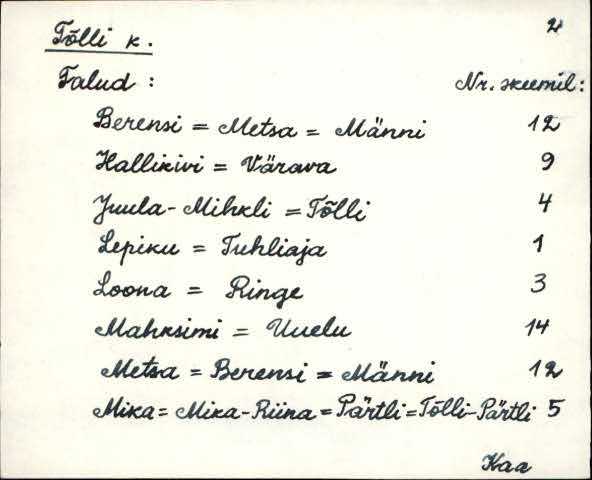 2
Tõlli k.
Talud : Nr. skeemil:
Berensi = Metsa = Männi 12
Hallikivi = Värava 9
Juula-Mihkli = Tõlli 4
Lepiku = Tuhliaja 1
Loona = Ringe 3
Mahksimi = Uuelu 14
Metsa = Berensi = Männi 12
Mika = Mika-Riina = Pärtli = Tõlli-Pärtli 5
Kaa